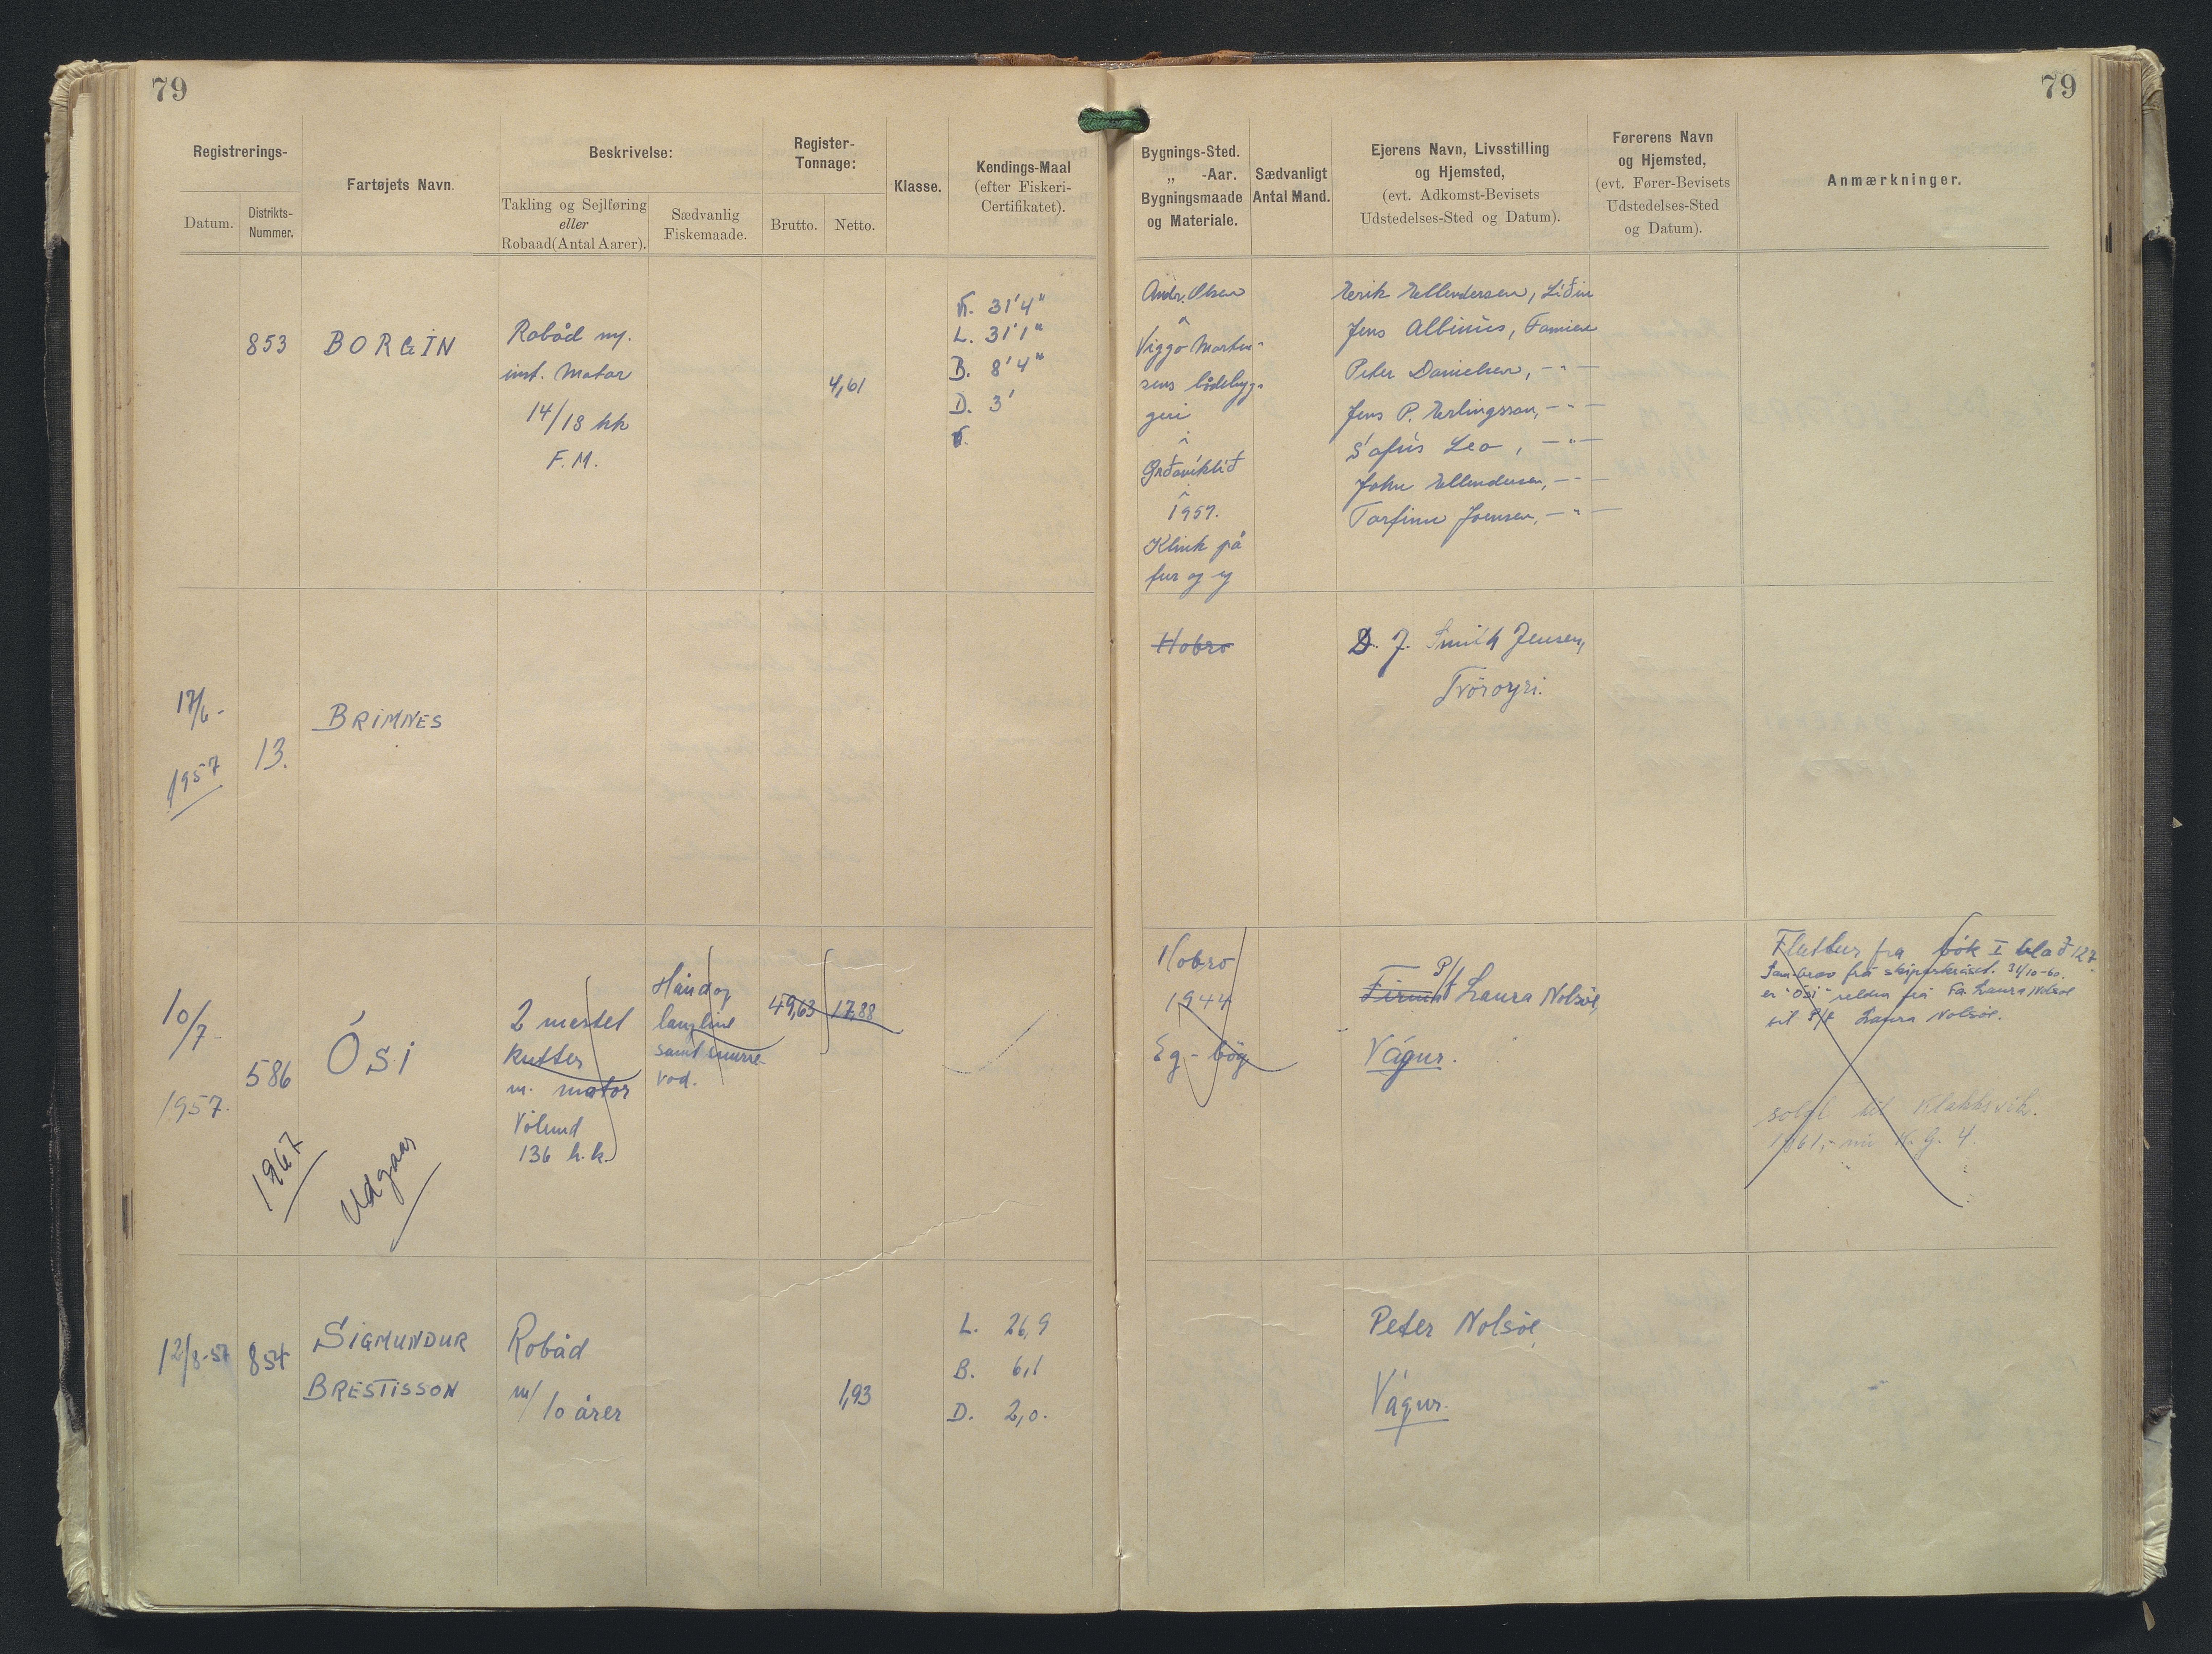 79
79
Registrerings-
Datum.
Distrikts-
Nummer.
Fartøjets Navn.
Beskrivelse:
Takling og Sejlføring
eller
Robaad (Antal Aarer).
Sædvanlig
Fiskemaade.
Register-
Tonnage:
Brutto.
Netto.
Klasse.
Kendings-Maal
(efter Fiskeri-
Certifikatet).
Bygnings-Sted.
„ -Aar.
Bygningsmaade
og Materiale.
Sædvanligt
Antal Mand.
Ejerens Navn, Livsstilling
og Hjemsted,
(evt. Adkomst-Bevisets
Udstedelses-Sted og Datum).
Førerens Navn
og Hjemsted,
(evt. Fører-Bevisets
Udstedelses-Sted
og Datum).
Anmærkninger.
853
BORGIN
Robåd m/.
inst. Motor
14/18 hk
F.M.
4,61
31'4"
L. 31'1"
B. 8'4"
D. 3'
Andr. Olsen
Viggo Morten-
sens bådebyg-
geri
1957.
Klink på
fur og eg
Eerik Ellendersen, Liðin
Jens Albinus, Famien
Peter Danielsen, -"-
Jens P. Erlingsson, -"-
Sofus Leo, -"-
John Ellendersen, -"-
Torfinn Joensen, -"-
17/6-
1957
13.
BRIMNES
Hobro
D. J. Smith Jensen,
Tvöroyri.
10/7-
1957.
586
ÓSI
1967
Udgaar
2 mastet
kutter
m. motor
Vølund
136 h.k.
Hånd og
langline
samt snurre-
vod.
49,63
17,88
Hobro
1944
Eg - bøg
Firmað P/f Laura Nolsöe,
Vágur.
Fluttur frá bók I blað 127.
Samb. frá skipaskrás. 31/10-60.
er "Ósi" seldur frá Fa. Laura Nolsöe
til P/f Laura Nolsöe.
solgt til Klakksvík.
1961,- nú K.G. 4.
12/8-57
854
SIGMUNDUR
BRESTISSON
Robåd
m/ 10 årer
1,93
L. 26,9
B. 6,1
D. 2,0.
Peter Nolsöe,
Vágur.